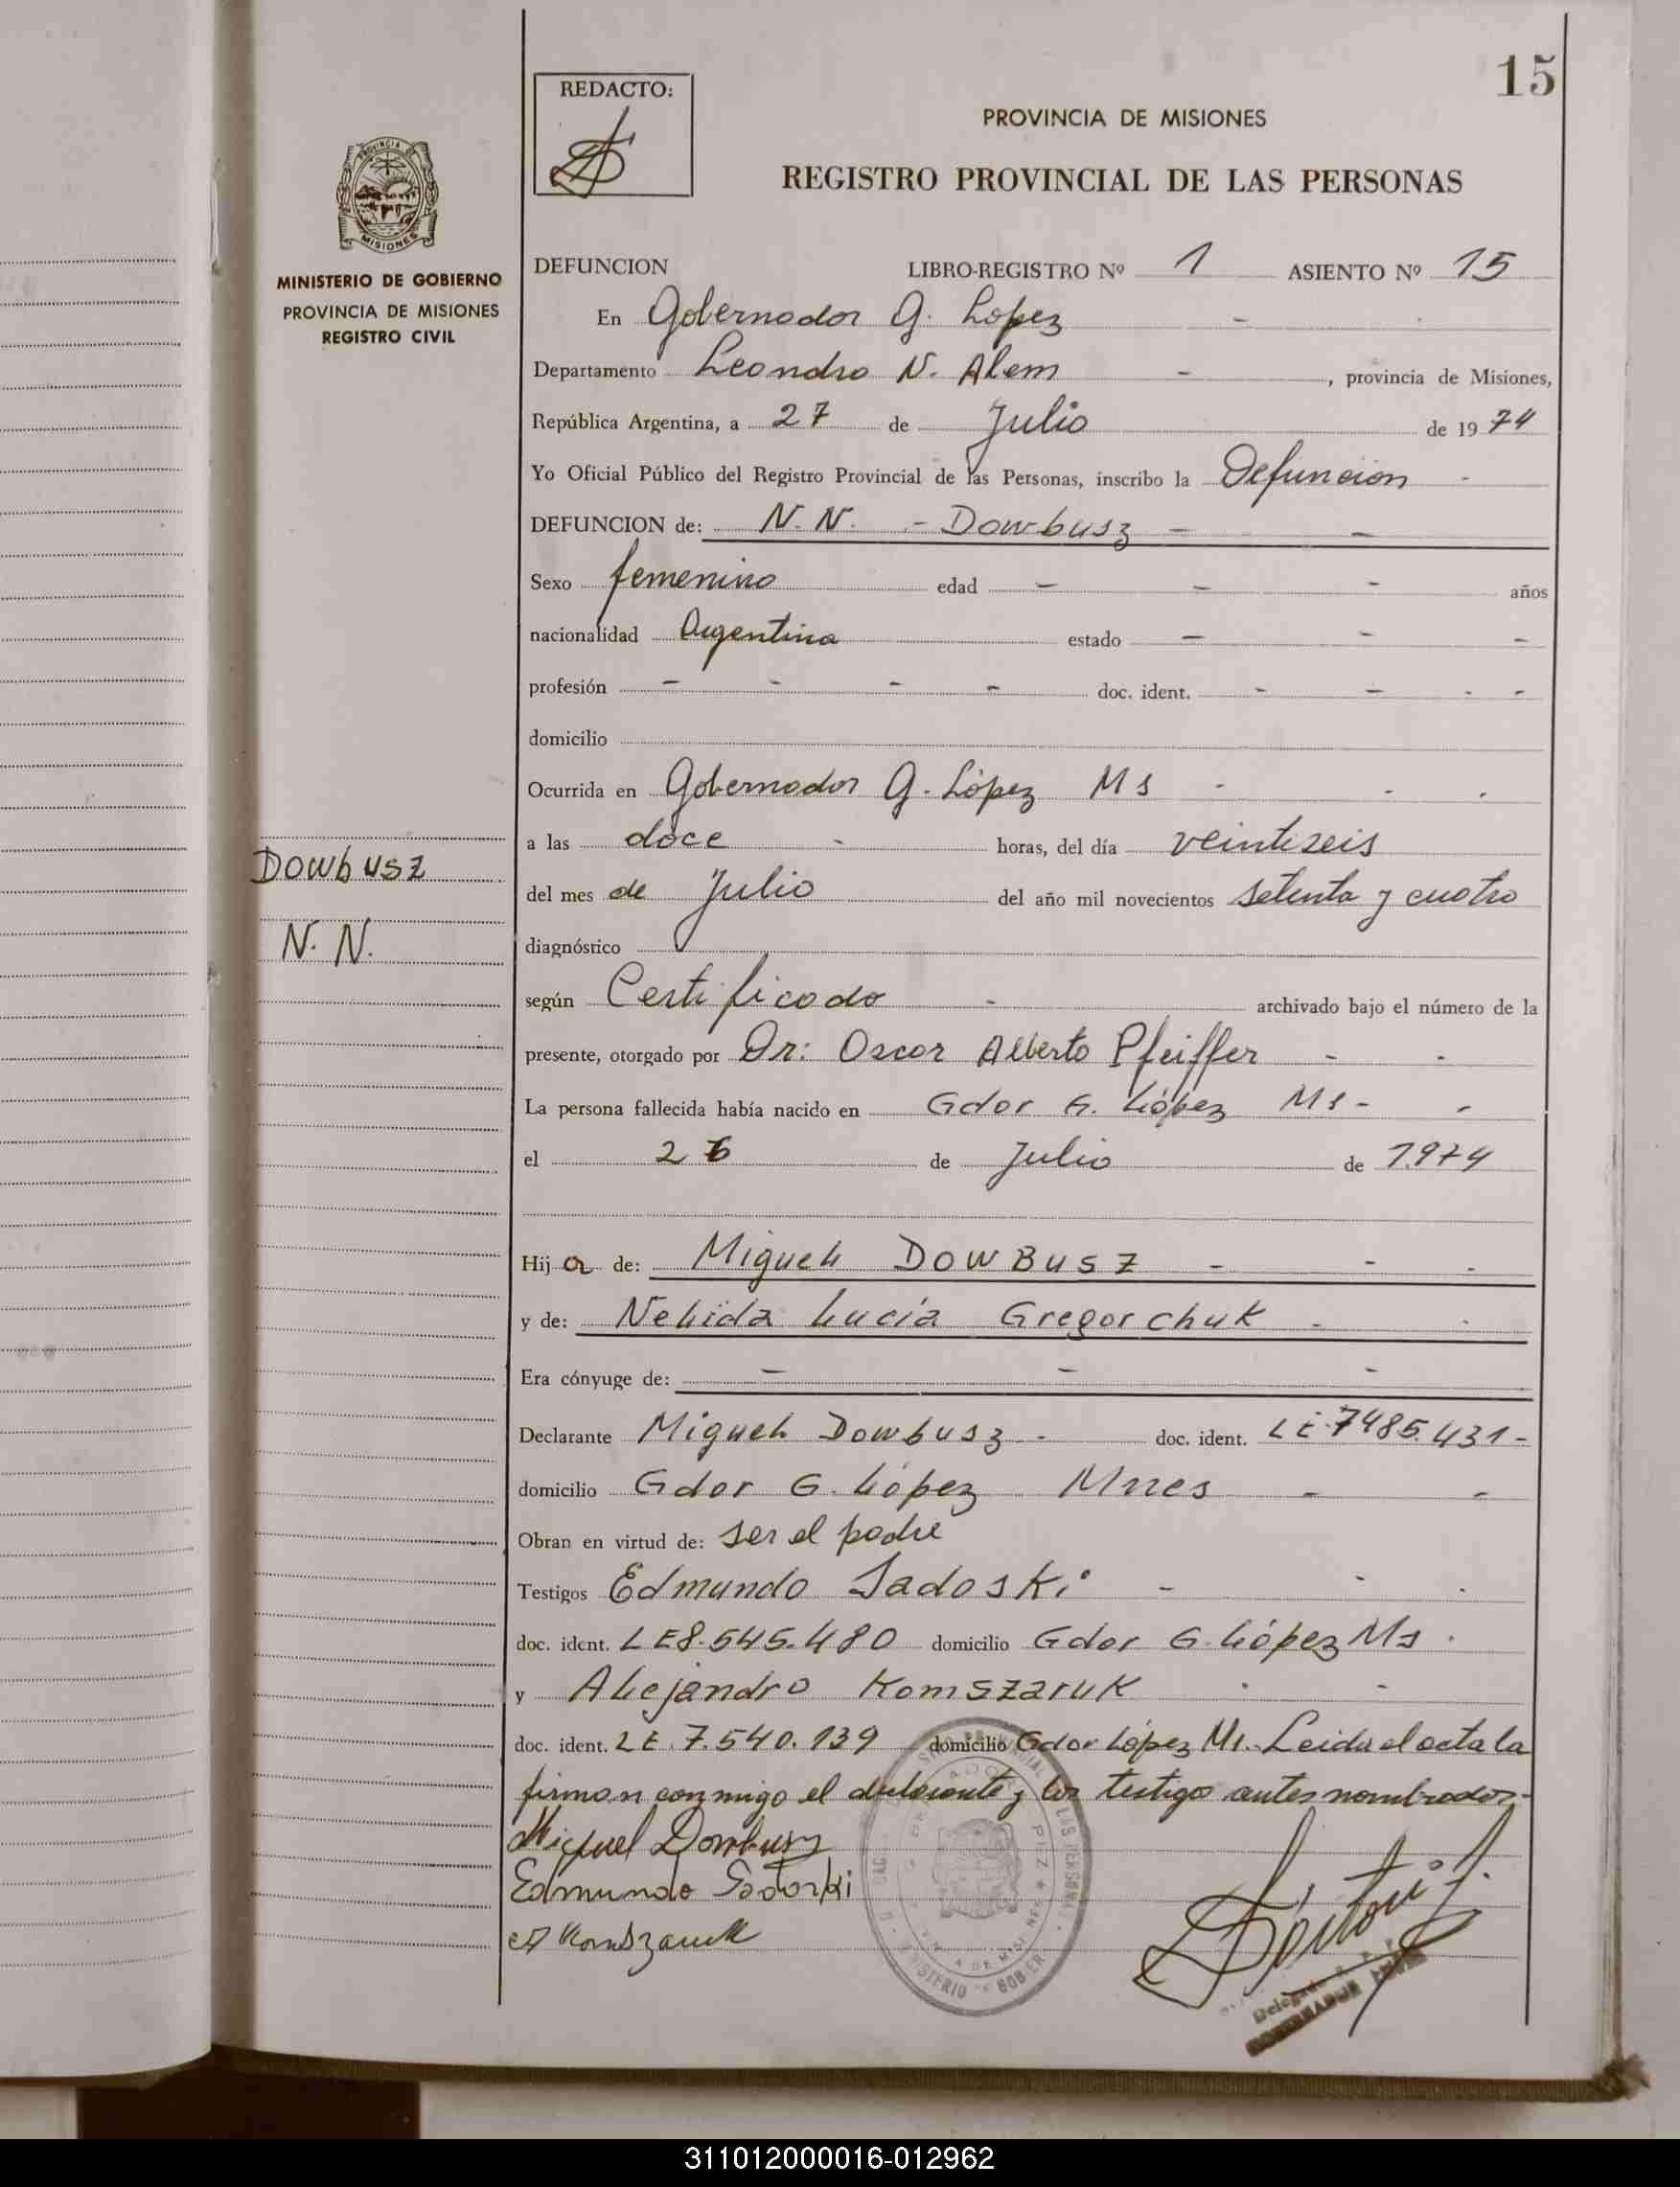 15
REDACTO:
PROVINCIA DE MISIONES
REGISTRO PROVINCIAL DE LAS PERSONAS
PROVINCIA DE
MISIONES
MINISTERIO DE GOBIERNO
PROVINCIA DE MISIONES
REGISTRO CIVIL
DEFUNCION LIBRO-REGISTRO Nº 1 ASIENTO Nº 15
En Gobernador G. Lopez -
Departamento Leandro N. Alem - , provincia de Misiones,
República Argentina, a 27 de Julio de 1974
Yo Oficial Público del Registro Provincial de las Personas, inscribo la Defuncion -
DEFUNCION de: N. N. - Dowbusz - -
Sexo femenino edad - - - años
nacionalidad Argentina estado - - -
profesión - - - - doc. ident. - - - -
domicilio
Ocurrida en Gobernador G. López Ms - - .
a las doce - horas, del día veintiseis
del mes de Julio del año mil novecientos setenta y cuatro
Dowbusz
N. N.
diagnóstico
según Certificado - archivado bajo el número de la
presente, otorgado por Dr: Oscar Alberto Pfeiffer - -
La persona fallecida había nacido en Gdor G. López Ms - -
el 26 de Julio de 1.974
Hija de: Miguel DOWBUSZ - - -
y de: Nelida Lucía Gregorchuk - -
Era cónyuge de: - - -
Declarante Miguel Dowbusz - doc. ident. LE.7485.431-
domicilio Gdor G. López Mnes - -
Obran en virtud de: ser el padre
Testigos Edmundo Sadoski - - .
doc. ident. LE8.545.480 domicilio Gdor G. López Ms .
y Alejandro Komszaruk - -
doc. ident. LE.7.540.139 domicilio Gdor López Ms. Leida el acta la
firman conmigo el declarante y los testigos antes nombrados.-
Miguel Dowbusz
Edmundo Sadoski
A Komszaruk
Delegado
GOBERNADOR LOPEZ
311012000016-012962